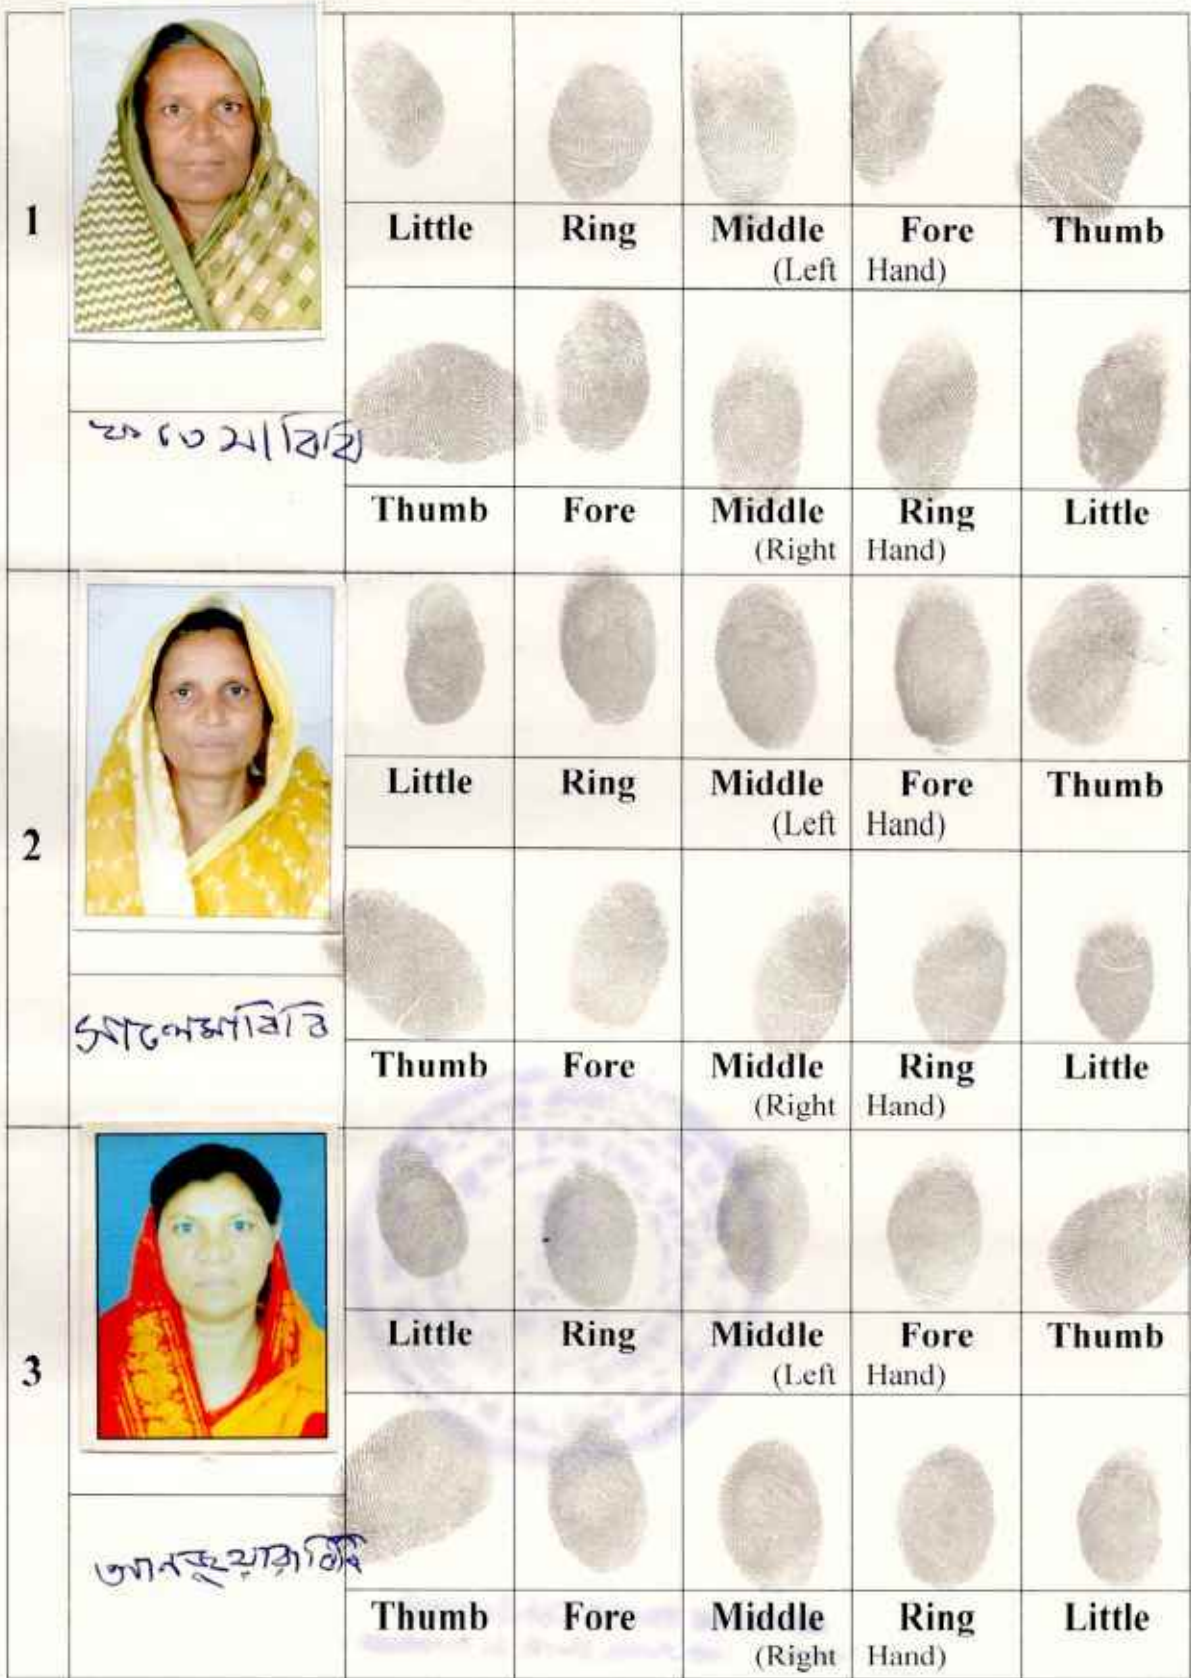 1
Little Ring Middle Fore Thumb
(Left Hand)
বিবি
Thumb Fore Middle Ring Little
(Right Hand)
2
Little Ring Middle Fore Thumb
(Left Hand)
সালেমা বিবি
Thumb Fore Middle Ring Little
(Right Hand)
3
Little Ring Middle Fore Thumb
(Left Hand)
বিবি
Thumb Fore Middle Ring Little
(Right Hand)